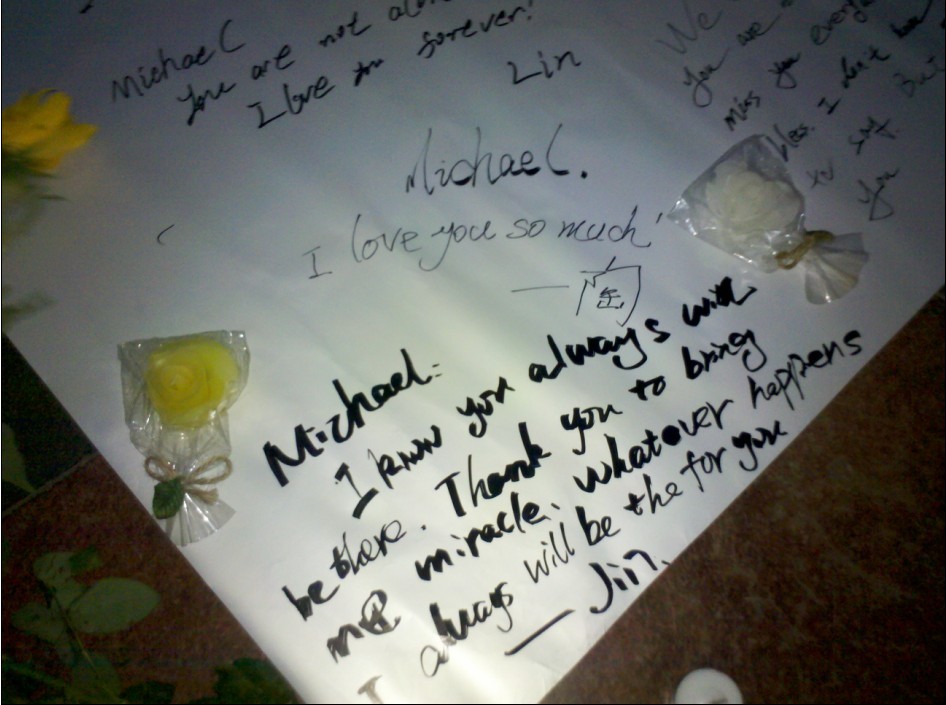 Michael
You are not alone
I love you forever!
Lin
We
you are
miss you every
bless. I don't have
to say. But
you
Michael.
I love you so much!
Michael:
I know you always with
be there. Thank you to bring
me miracle. whatever happens
I always will be the for you
— Jin.